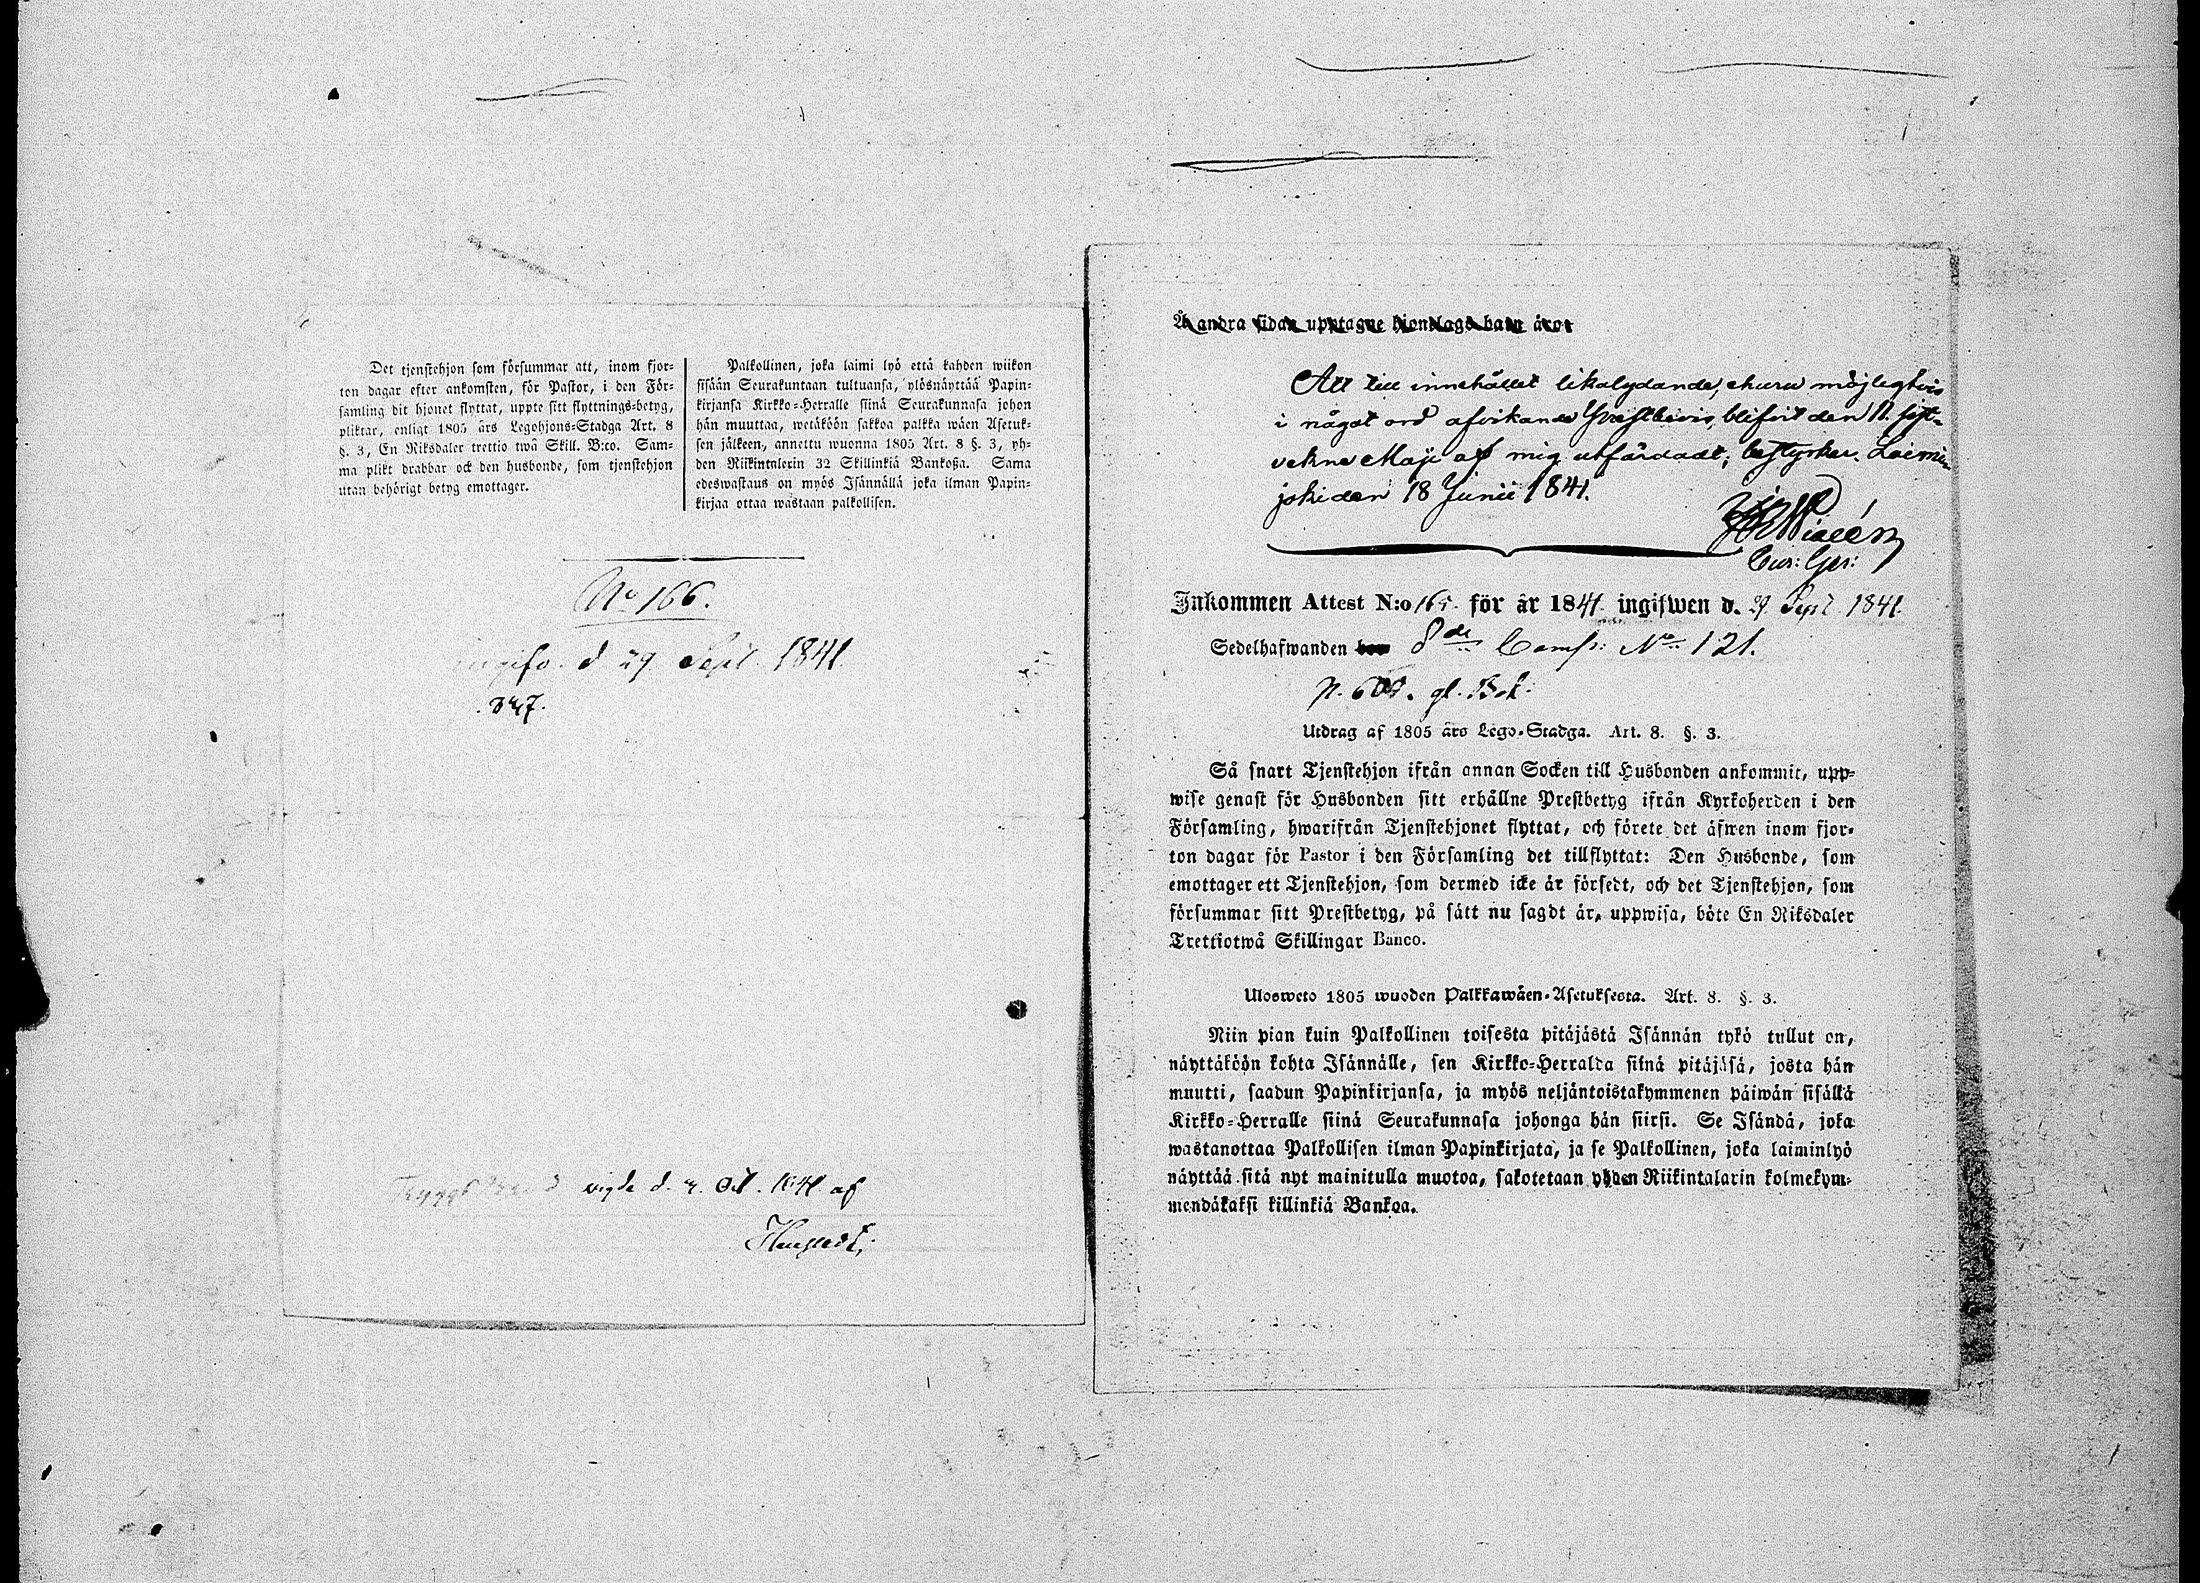 Det tjenstehjon som försummar att, inom fjor-
ton dagar efter ankomsten, för Pastor, i den För-
samling dit hjonet flyttat, uppte sitt flyttnings-betyg,
pliktar, enligt 1805 års Legohjons-Stadga Art. 8
§. 3, En Riksdaler trettio twå Skill. B:co. Sam-
ma plikt drabbar ock den husbonde, som tjenstehjon
utan behörigt betyg emottager.
Palkollinen, joka laimi lyö että kahden wiikon
sisään Seurakuntaan tultuansa, ylösnäyttää Papin-
kirjansa Kirkko-Herralle siinä Seurakunnasa johon
hän muuttaa, wetäköön sakkoa palkka wäen Asetuk-
sen jälkeen, annettu wuonna 1805 Art. 8 §. 3, yh-
den Riikintalerin 32 Skillinkiä Bankoßa. Sama
edeswastaus on myös Isännällä joka ilman Papin-
kirjaa ottaa wastaan palkollisen.
No 166.
d 29 Sept. 1841.
347.
vigde d. 4. Oct. 1841 af
Å andra sidan upptagne hionelags barn äro:
Att till innehållet likalydande, ehuru möjligtvis
i något ord afvikande Prestbevis, blifvit den 11 sist-
vekne Maji af mig utfärdadt, bestyrker. Loimi-
joki den 18 Junii 1841.
Inkommen Attest N:o 165. för år 1841 ingifwen d. 29 Sept 1841.
Sedelhafwanden 8de Comp: No 121.
Utdrag af 1805 års Lego-Stadga. Art. 8. §. 3.
Så snart Tjenstehjon ifrån annan Socken till Husbonden ankommit, upp-
wise genast för Husbonden sitt erhållne Prestbetyg ifrån Kyrkoherden i den
Församling, hwarifrån Tjenstehjonet flyttat, och förete det äfwen inom fjor-
ton dagar för Pastor i den Församling det tillflyttat: Den Husbonde, som
emottager ett Tjenstehjon, som dermed icke är försedt, och det Tjenstehjon, som
försummar sitt Prestbetyg, på sätt nu sagdt är, uppwisa, böte En Riksdaler
Trettiotwå Skillingar Banco.
Ulosweto 1805 wuoden Palkkawäen-Asetuksesta. Art. 8. §. 3.
Niin pian kuin Palkollinen toisesta pitäjästä Isännän tykö tullut on,
näyttäköön kohta Isännälle, sen Kirkko-Herralda siinä pitäjäsä, josta hän
muutti, saadun Papinkirjansa, ja myös neljäntoistakymmenen päiwän sisällä
Kirkko-Herralle siinä Seurakunnasa johonga hän siirsi. Se Isändä, joka
wastanottaa Palkollisen ilman Papinkirjata, ja se Palkollinen, joka laiminlyö
näyttää sitä nyt mainitulla muotoa, sakotetaan yhden Riikintalarin kolmekym-
mendäkaksi killinkiä Bankoa.